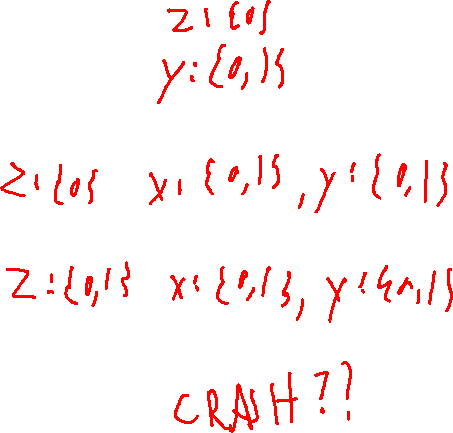 z: {0}
y: {0,1}
z: {0} x: {0,1}, y: {0,1}
z: {0,1} x: {0,1}, y: {0,1}
CRASH??